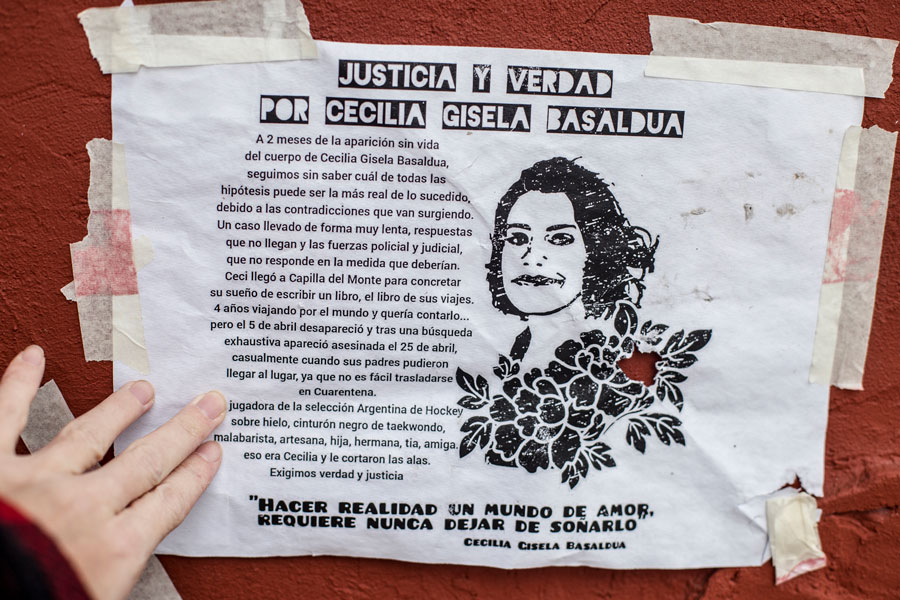 JUSTICIA Y VERDAD
POR CECILIA GISELA BASALDUA
A 2 meses de la aparición sin vida
del cuerpo de Cecilia Gisela Basaldua,
seguimos sin saber cuál de todas las
hipótesis puede ser la más real de lo sucedido,
debido a las contradicciones que van surgiendo.
Un caso llevado de forma muy lenta, respuestas
que no llegan y las fuerzas policial y judicial,
que no responden en la medida que deberían.
Ceci llegó a Capilla del Monte para concretar
su sueño de escribir un libro, el libro de sus viajes.
4 años viajando por el mundo y quería contarlo...
pero el 5 de abril desapareció y tras una búsqueda
exhaustiva apareció asesinada el 25 de abril,
casualmente cuando sus padres pudieron
llegar al lugar, ya que no es fácil trasladarse
en Cuarentena.
jugadora de la selección Argentina de Hockey
sobre hielo, cinturón negro de taekwondo,
malabarista, artesana, hija, hermana, tia, amiga.
eso era Cecilia y le cortaron las alas.
Exigimos verdad y justicia
"HACER REALIDAD UN MUNDO DE AMOR,
REQUIERE NUNCA DEJAR DE SOÑARLO"
CECILIA GISELA BASALDUA